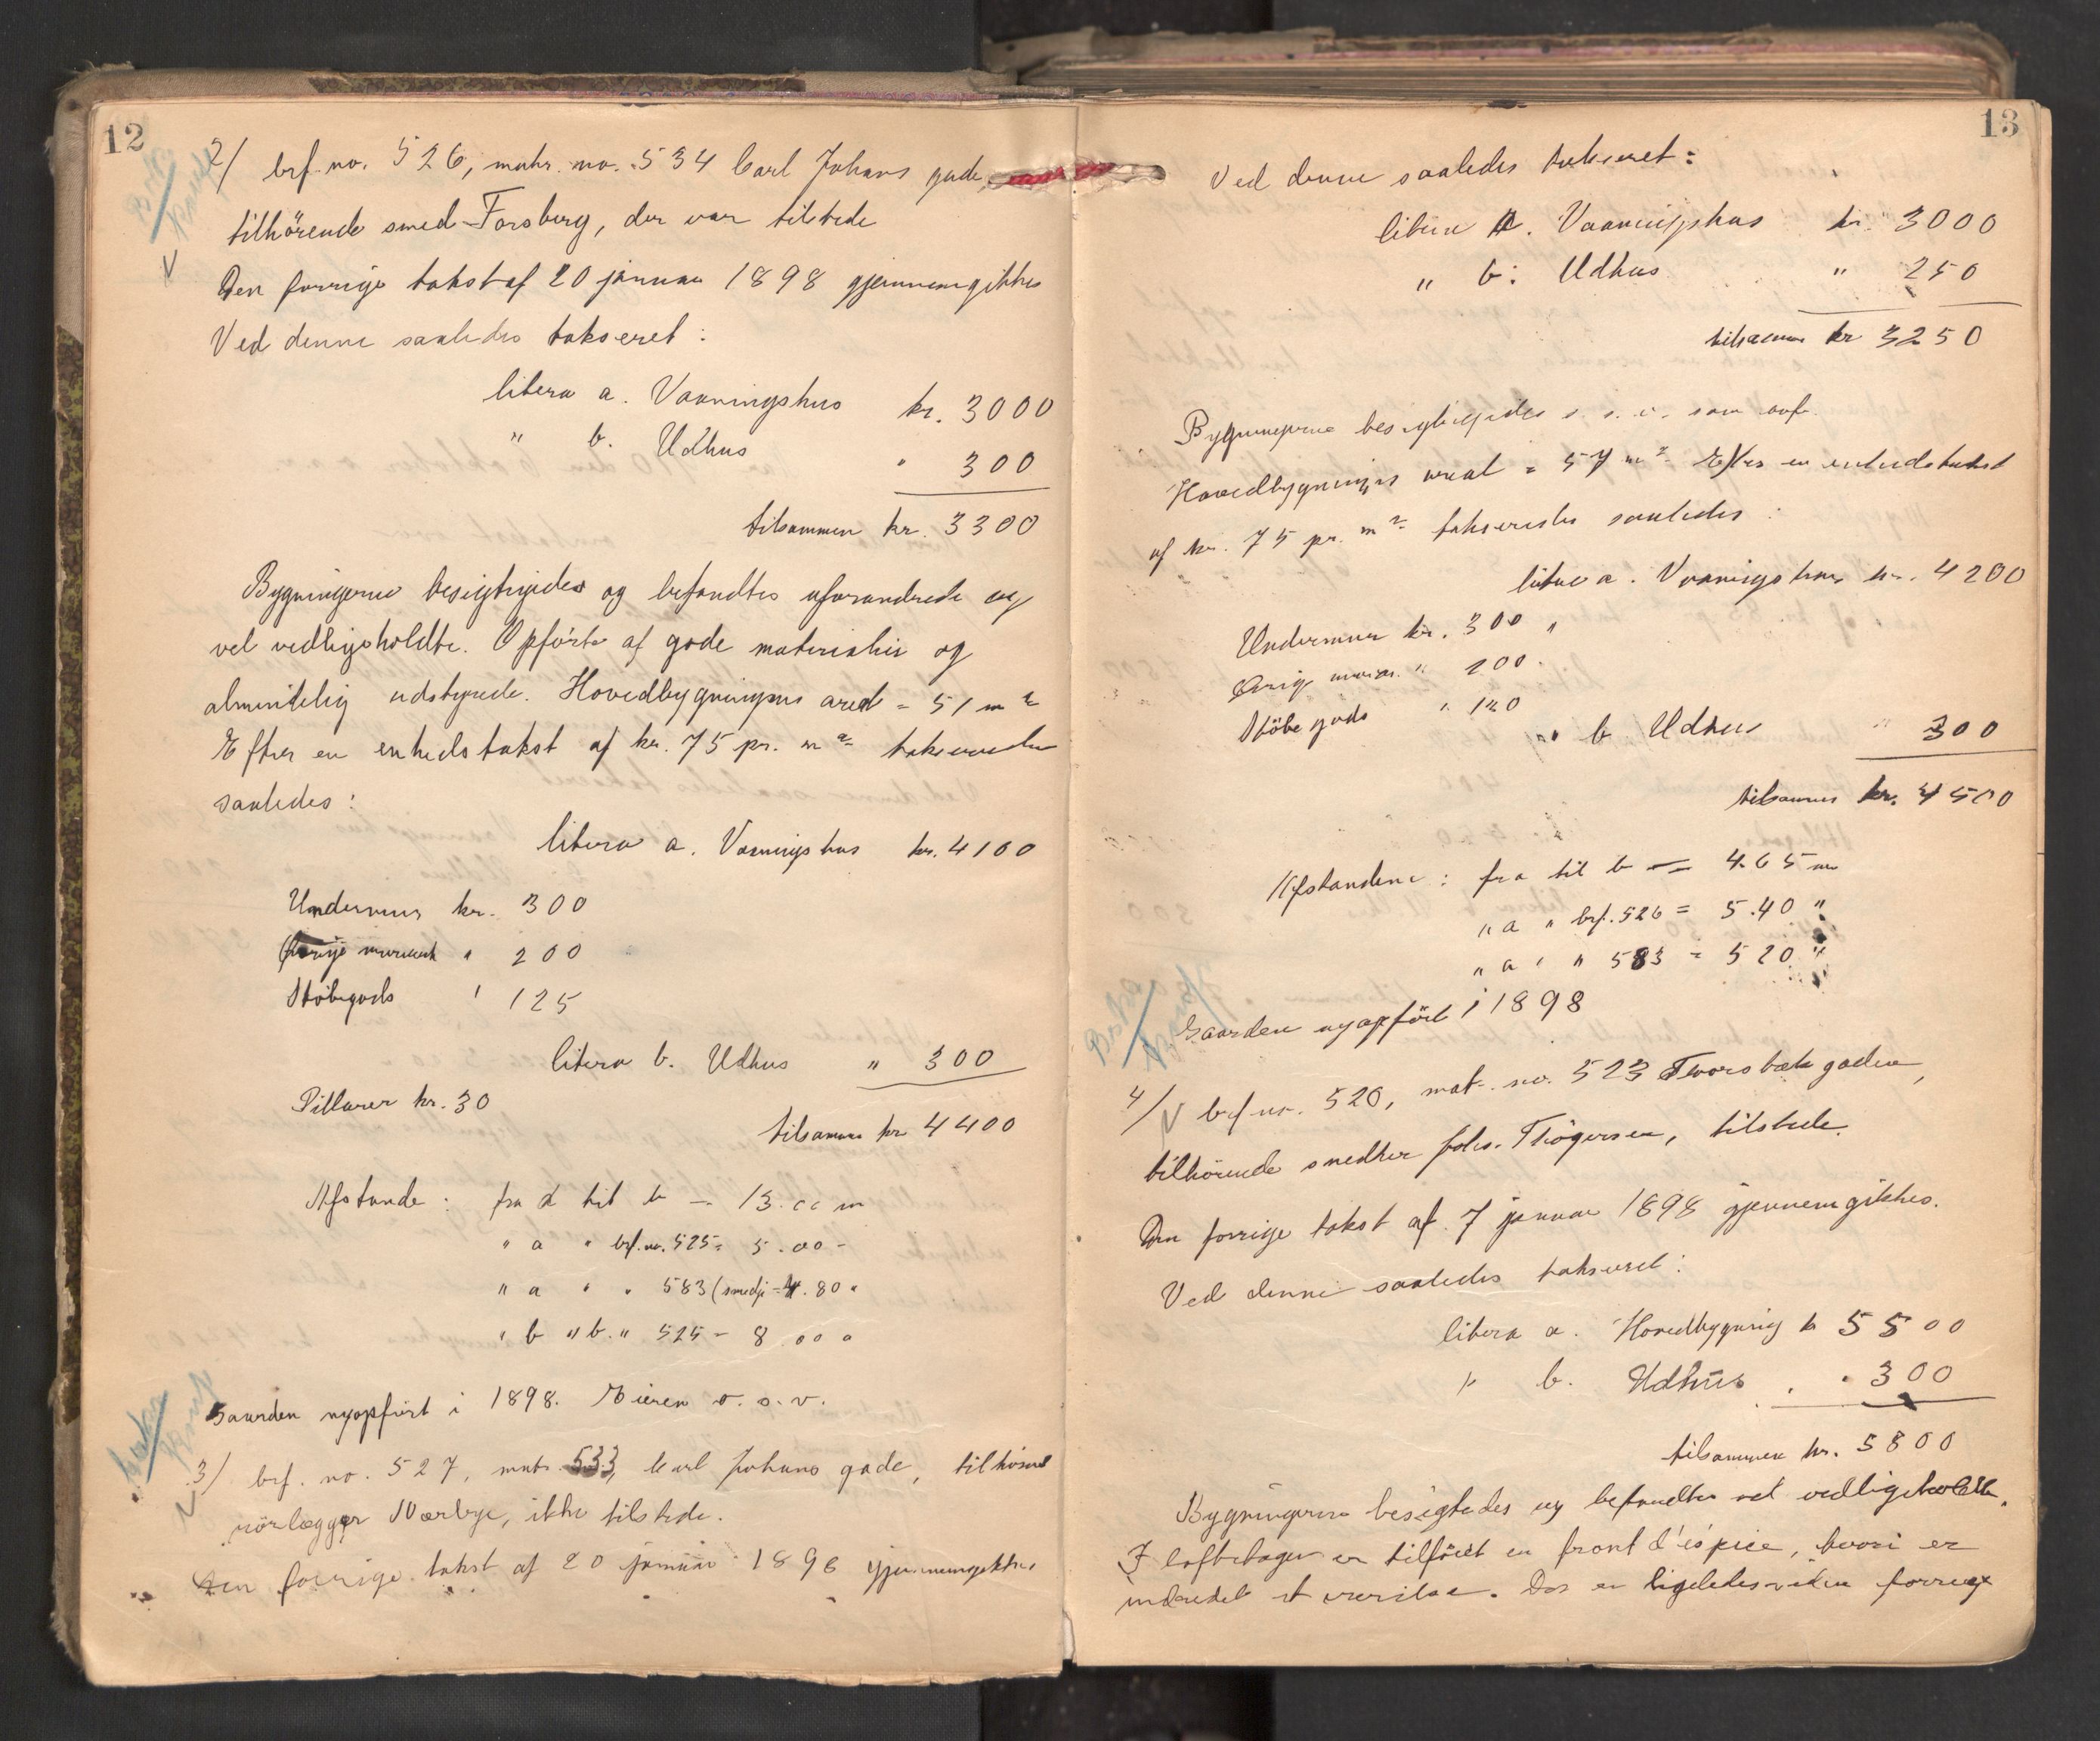 12
2/ brf. no. 526, matr. no. 534 Carl Johans gade,
tilhörende smed Forsberg, der var tilstede
Den forrige takst af 20 januar 1898 gjennemgikkes
Ved denne saaledes takseret:
litera a. Vaaningshus kr. 3000
" b. Udhus " 300
tilsammen kr. 3300
Bygningerne besigtigedes og befandtes uforandrede og
vel vedligeholdte. Opförte af gode materialier og
almindelig udstyrede. Hovedbygningens areal = 51 m2
Efter en enhedstakst af kr. 75 pr. m2 takseredes
saaledes:
litera a. Vaaningshus kr. 4100
Undermur kr. 300
Övrige murværk " 200
Stöbegods " 125
litera b. Udhus " 300
Pillarer kr. 30
tilsammen kr 4400
Afstande: fra a til b — 13.00 m
" a " brf. no. 525 = 5.00 -
" a " " 583 (smedje = 4.80 "
" b " b. " 525 = 8.00 "
Gaarden nyopfört i 1898. Eieren o. s. v.
3/ brf. no. 527, matr. 533, Carl Johans gade, tilhörende
rörlægger Norbye, ikke tilstede.
Den forrige takst af 20 januar 1898 gjennemgikkes
13
Ved denne saaledes takseret:
litera a. Vaaningshus kr. 3000
" b: Udhus " 250
tilsammen kr 3250
Bygningerne besigtigedes o. s. v. som ovf.
Hovedbygningens areal = 57 m2 Efter en enhedstakst
af kr. 75 pr. m2 takseredes saaledes:
litera a. Vaaningshus kr. 4200
Undermur kr. 300 "
Övrige murv. " 200
Stöbegods " 120
" b Udhus " 300
tilsammen kr. 4500
Afstandene: fra til b — 4.65 m
" a " brf. 526 = 5.40 "
" a " " 583 = 5 20 "
Gaarden nyopfört i 1898
4/ brf no. 520, mat. no. 523 Tværsbækgaden,
tilhörende smedker Johs. Thögersen, tilstede.
Den forrige takst af 7 januar 1898 gjennemgikkes.
Ved denne saaledes takseret:
litera a. Hovedbygning kr 5500
" b. Udhus " 300
tilsammen kr. 5800
Bygningerne besigtedes og befandtes vel vedligeholdte.
I loftetagen er tilföiet en front d'éspice, hvori er
indredet et værelse. Der er ligeledes siden forrige